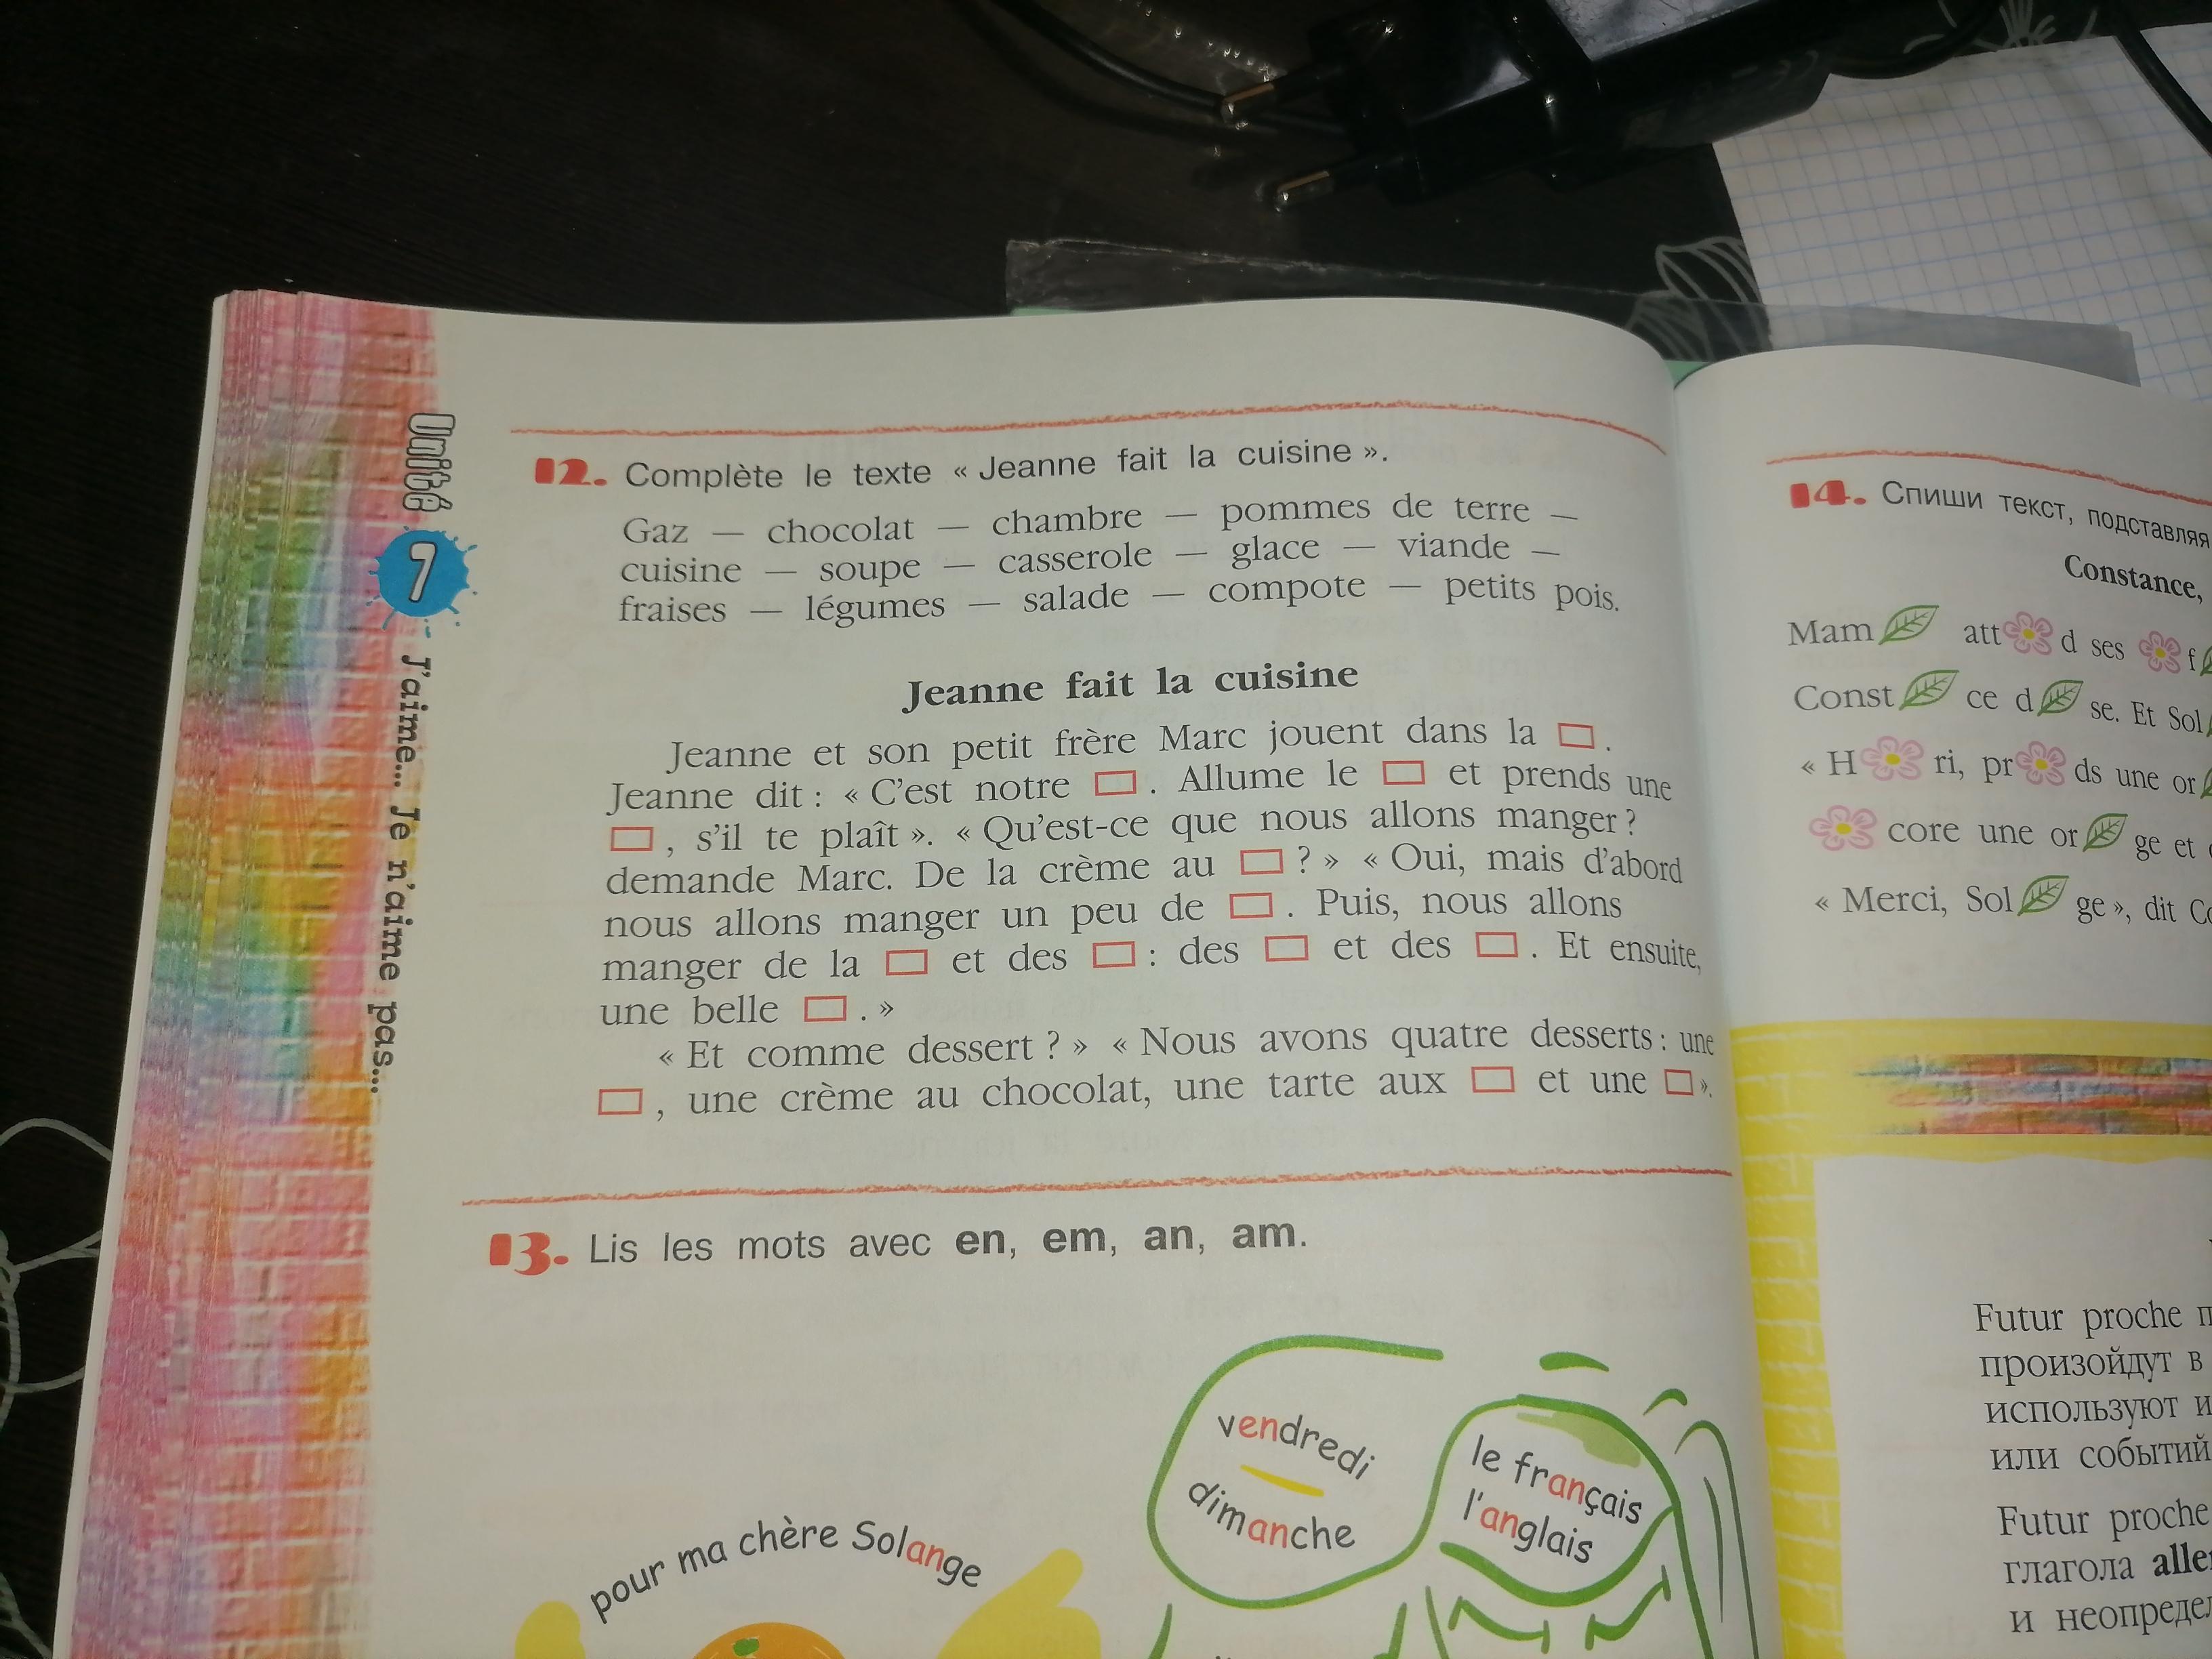 Unité 7 J'aime... Je n'aime pas...
12. Complète le texte « Jeanne fait la cuisine ».
Gaz — chocolat — chambre — pommes de terre —
cuisine — soupe — casserole — glace — viande —
fraises — légumes — salade — compote — petits pois.
Jeanne fait la cuisine
Jeanne et son petit frère Marc jouent dans la □.
Jeanne dit : « C'est notre □. Allume le □ et prends une
□, s'il te plaît ». « Qu'est-ce que nous allons manger ?
demande Marc. De la crème au □ ? » « Oui, mais d'abord
nous allons manger un peu de □. Puis, nous allons
manger de la □ et des □ : des □ et des □. Et ensuite,
une belle □. »
« Et comme dessert ? » « Nous avons quatre desserts : une
□, une crème au chocolat, une tarte aux □ et une □ ».
13. Lis les mots avec en, em, an, am.
vendredi
dimanche
le français
l'anglais
pour ma chère Solange
14. Спиши текст, подставляя
Constance,
Mam att d ses f
Const ce d se. Et Sol
« H ri, pr ds une or
core une or ge et
« Merci, Sol ge », dit
Futur proche
произойдут в
используют
или событий
Futur proche
глагола
и